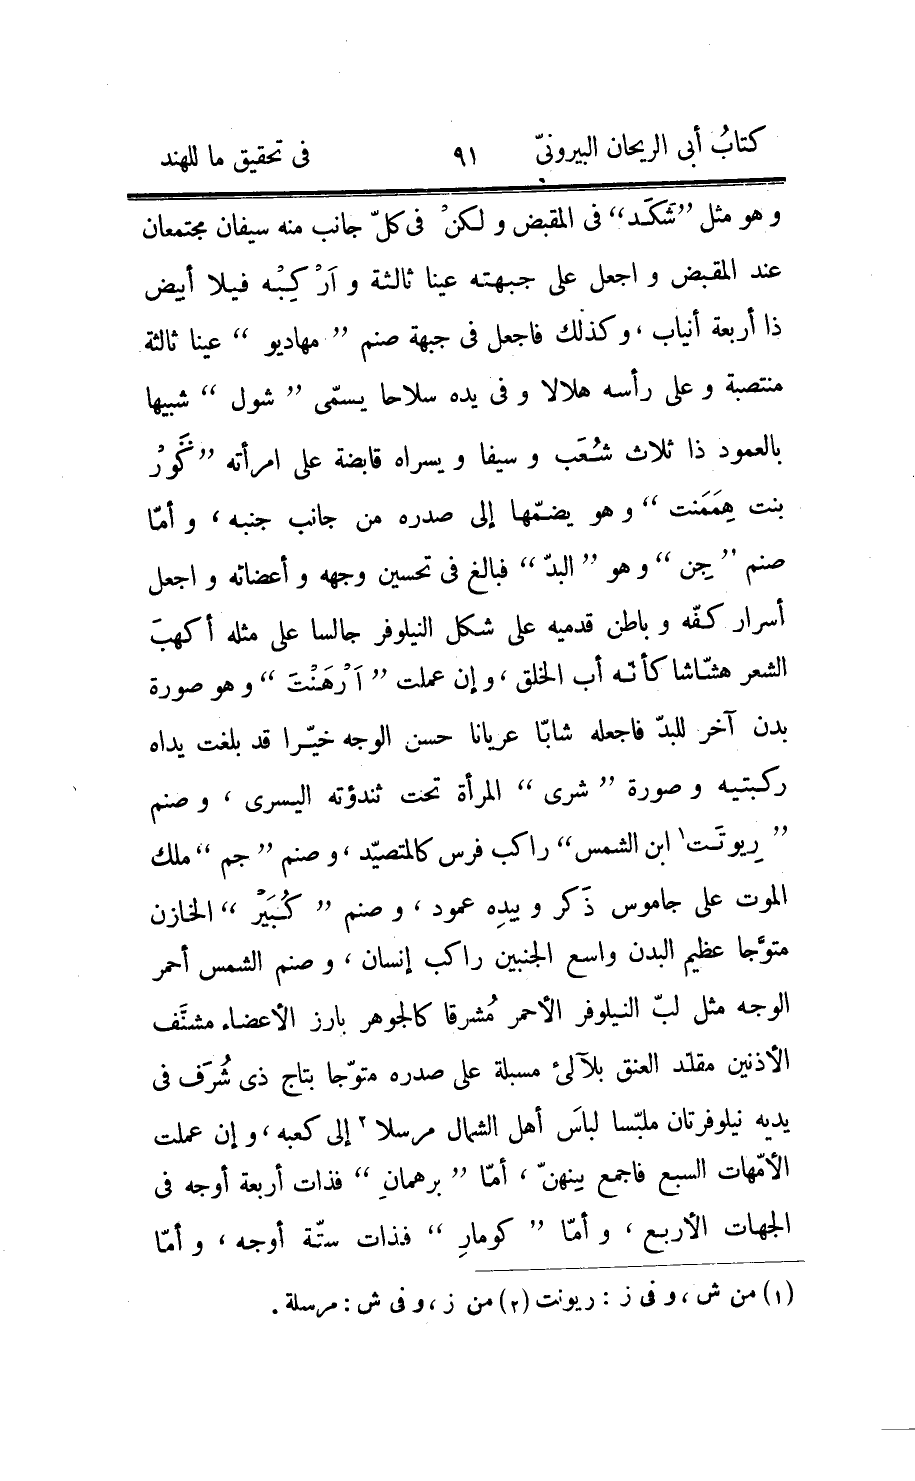 كتابُ أبى الريحان البيرونىّ ٩١ فى تحقيق ما للهند
و هو مثل ”شَكَد“ فى المقبض و لكنْ فى كلّ جانب منه سيفان مجتمعان
عند المقبض و اجعل على جبهته عينا ثالثة و اَرْكِبْه فيلا أبيض
ذا أربعة أنياب ، وكذلك فاجعل فى جبهة صنم ” مهاديو “ عينا ثالثة
منتصبة و على رأسه هلالا و فى يده سلاحا يسمّى ” شول “ شبيها
بالعمود ذا ثلاث شُعَب و سيفا و يسراه قابضة على امرأته ”
بنت هِمَمَنت “ و هو يضمّها إلى صدره من جانب جنبه ، و أمّا
صنم ” جِن “ و هو ” البدّ “ فبالغ فى تحسين وجهه و أعضائه و اجعل
أسرار كفّه و باطن قدميه على شكل النيلوفر جالسا على مثله أكهبَ
الشعر هشّاشا كأنّه أب الخلق ، و إن عملت ” اَرْهَنْتَ “ و هو صورة
بدن آخر للبدّ فاجعله شابّا عريانا حسن الوجه خيّرا قد بلغت يداه
ركبتيه و صورة ” شرى “ المرأة تحت ثندؤته اليسرى ، و صنم
” رِيوتَت١ ابن الشمس“ راكب فرس كالمتصيّد ، و صنم ” جم “ ملك
الموت على جاموس ذَكر و بيدِه عمود ، و صنم ” كُبَيْرَ “ الخازن
متوَّجا عظيم البدن واسع الجنبين راكب إنسان ، و صنم الشمس أحمر
الوجه مثل لبّ النيلوفر الأحمر مُشرقا كالجوهر بارز الأعضاء مشنَّف
الأذنين مقلّد العنق بلآلئ مسبلة على صدره متوّجا بتاج ذى شُرَف فى
يديه نيلوفرتان ملبّسا لباسَ أهل الشمال مرسلا ٢ إلى كعبه ، و إن عملت
الأمّهات السبع فاجمع بينهنّ ، أمّا ” برهمانِ “ فذات أربعة أوجه فى
الجهات الأربع ، و أمّا ” كومارِ “ فذات ستّة أوجه ، و أمّا
(١) من ش ، و فى ز : ريونت (٢) من ز ، و فى ش : مرسلة .